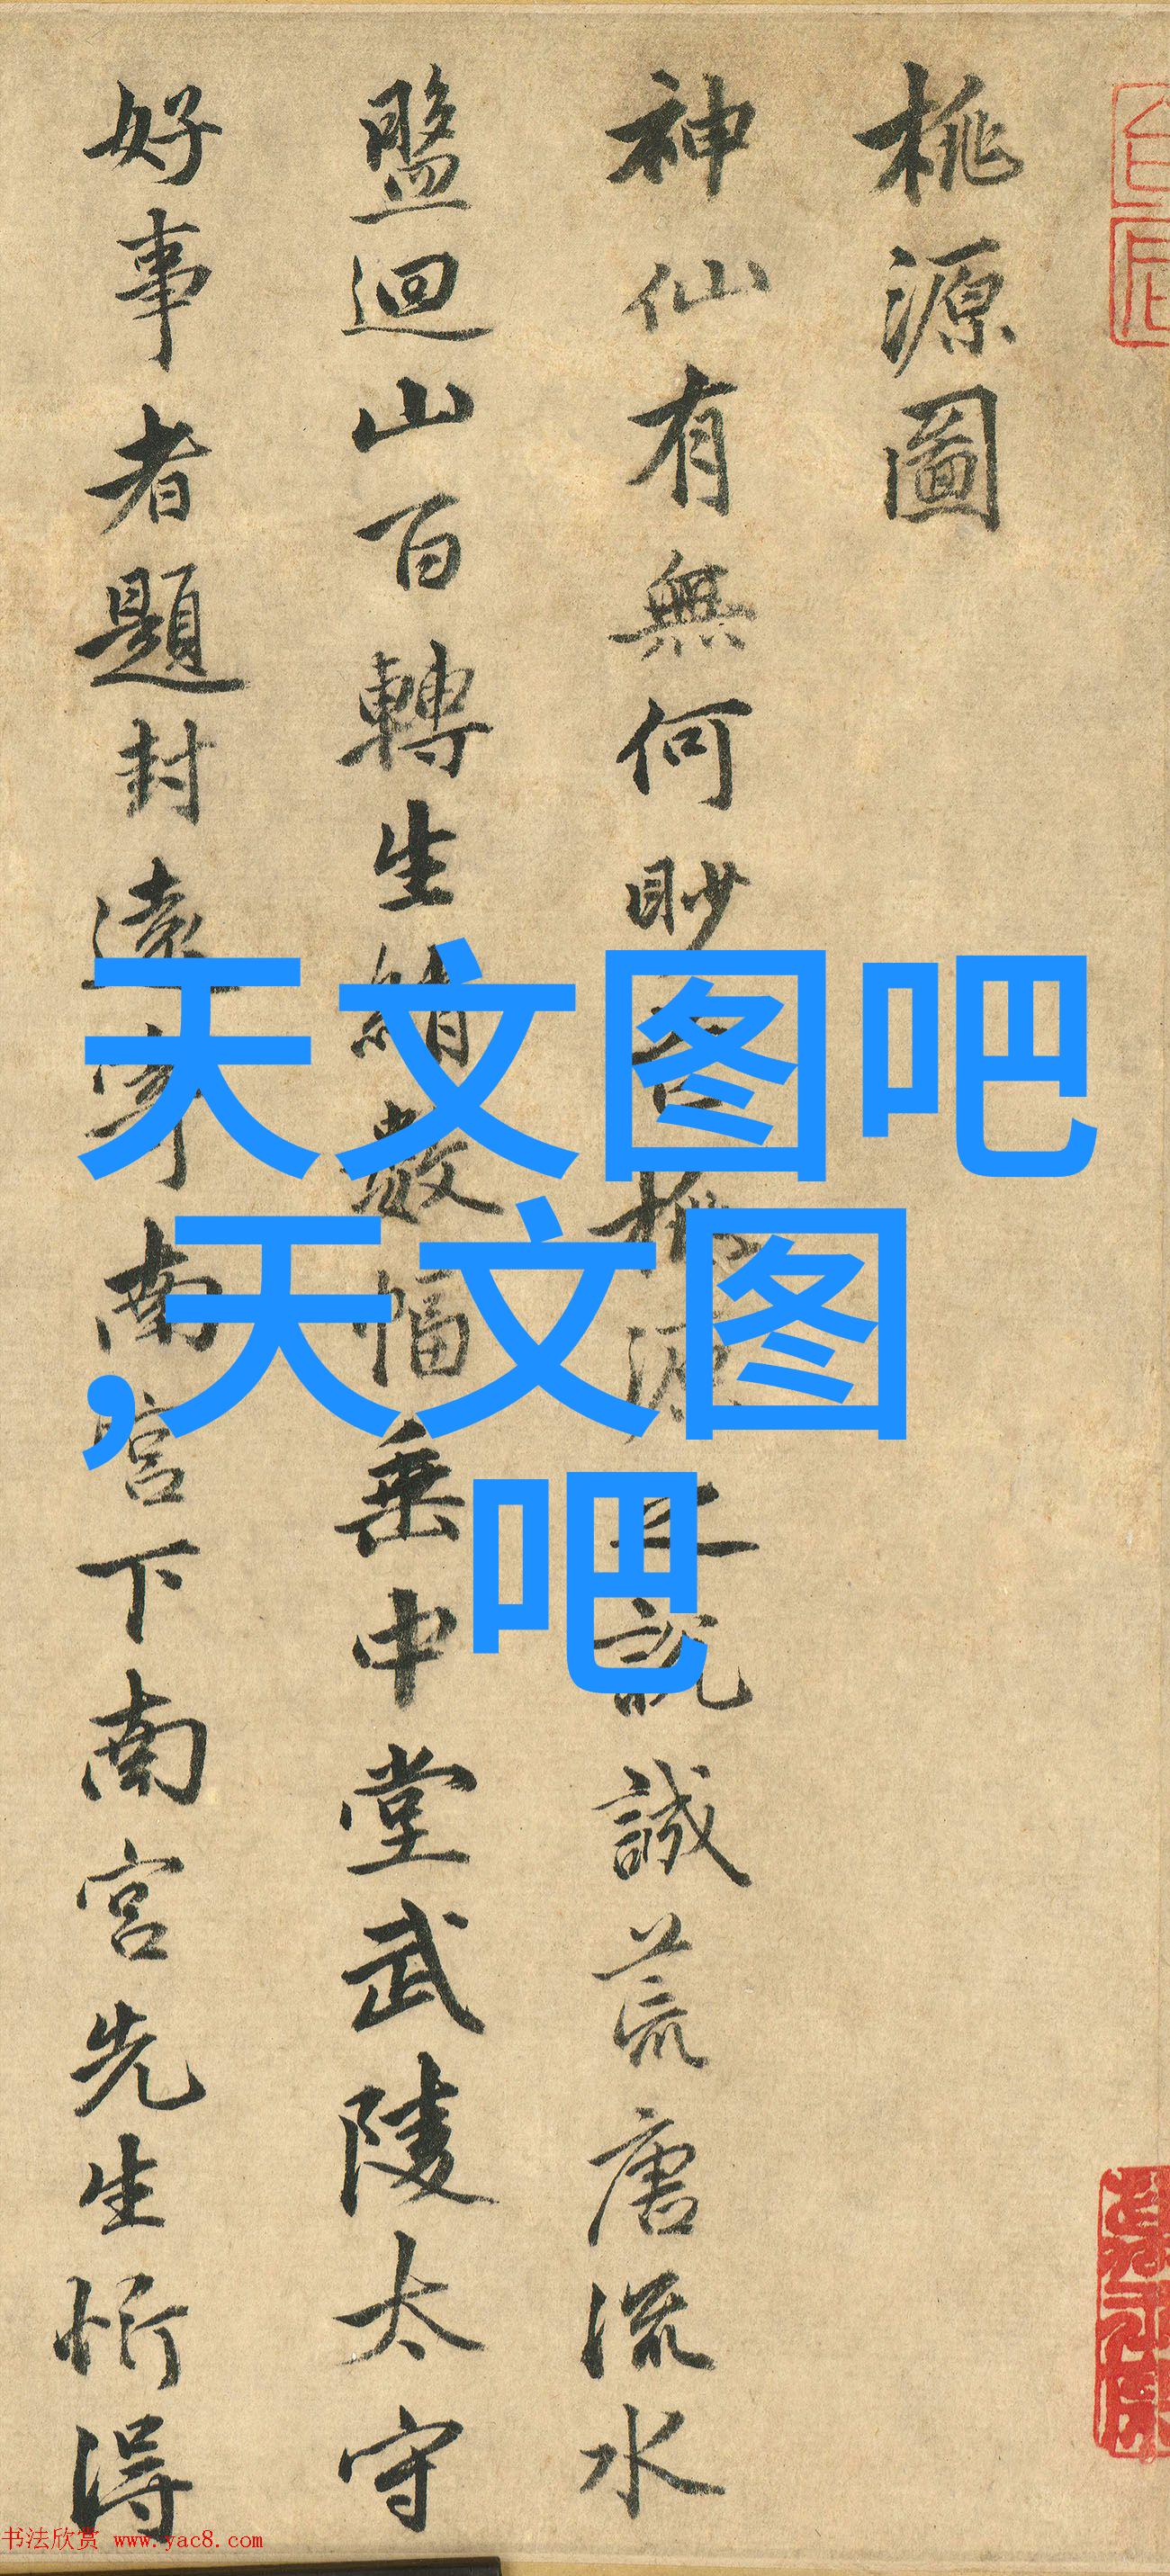 桃源圖
神仙有無何眇芒桃源之説誠荒唐流水
盤迴山百轉生綃數幅垂中堂武陵太守
好事者題封遠寄南宮下南宮先生忻得
天文图吧
,天文图
吧
书法欣赏 www.yac8.com